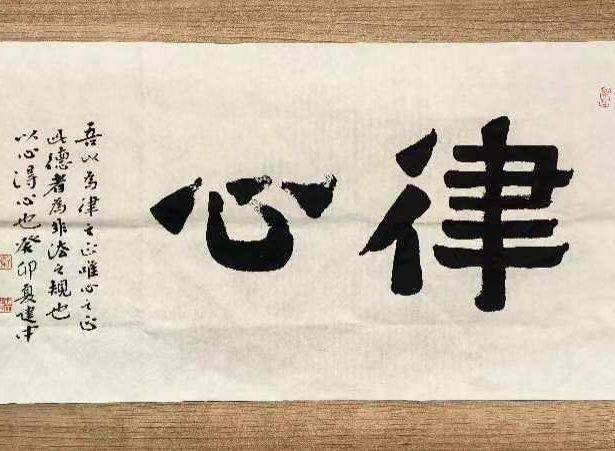 律心
吾以為律之正唯心之正
此德者為非法之規也
以心得心也癸卯夏建中